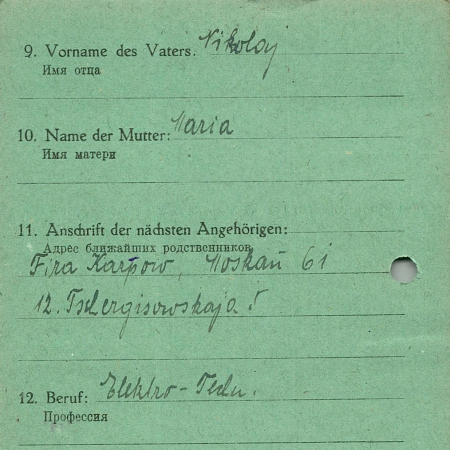 9. Vorname des Vaters: Nikolaj
Имя отца
10. Name der Mutter: Maria
Имя матери
11. Anschrift der nächsten Angehörigen:
Адрес ближайших родственников
Fira Karpow, Moskau 61
12. Tschergisowskaja 5
12. Beruf: Elektro-Techn.
Профессия